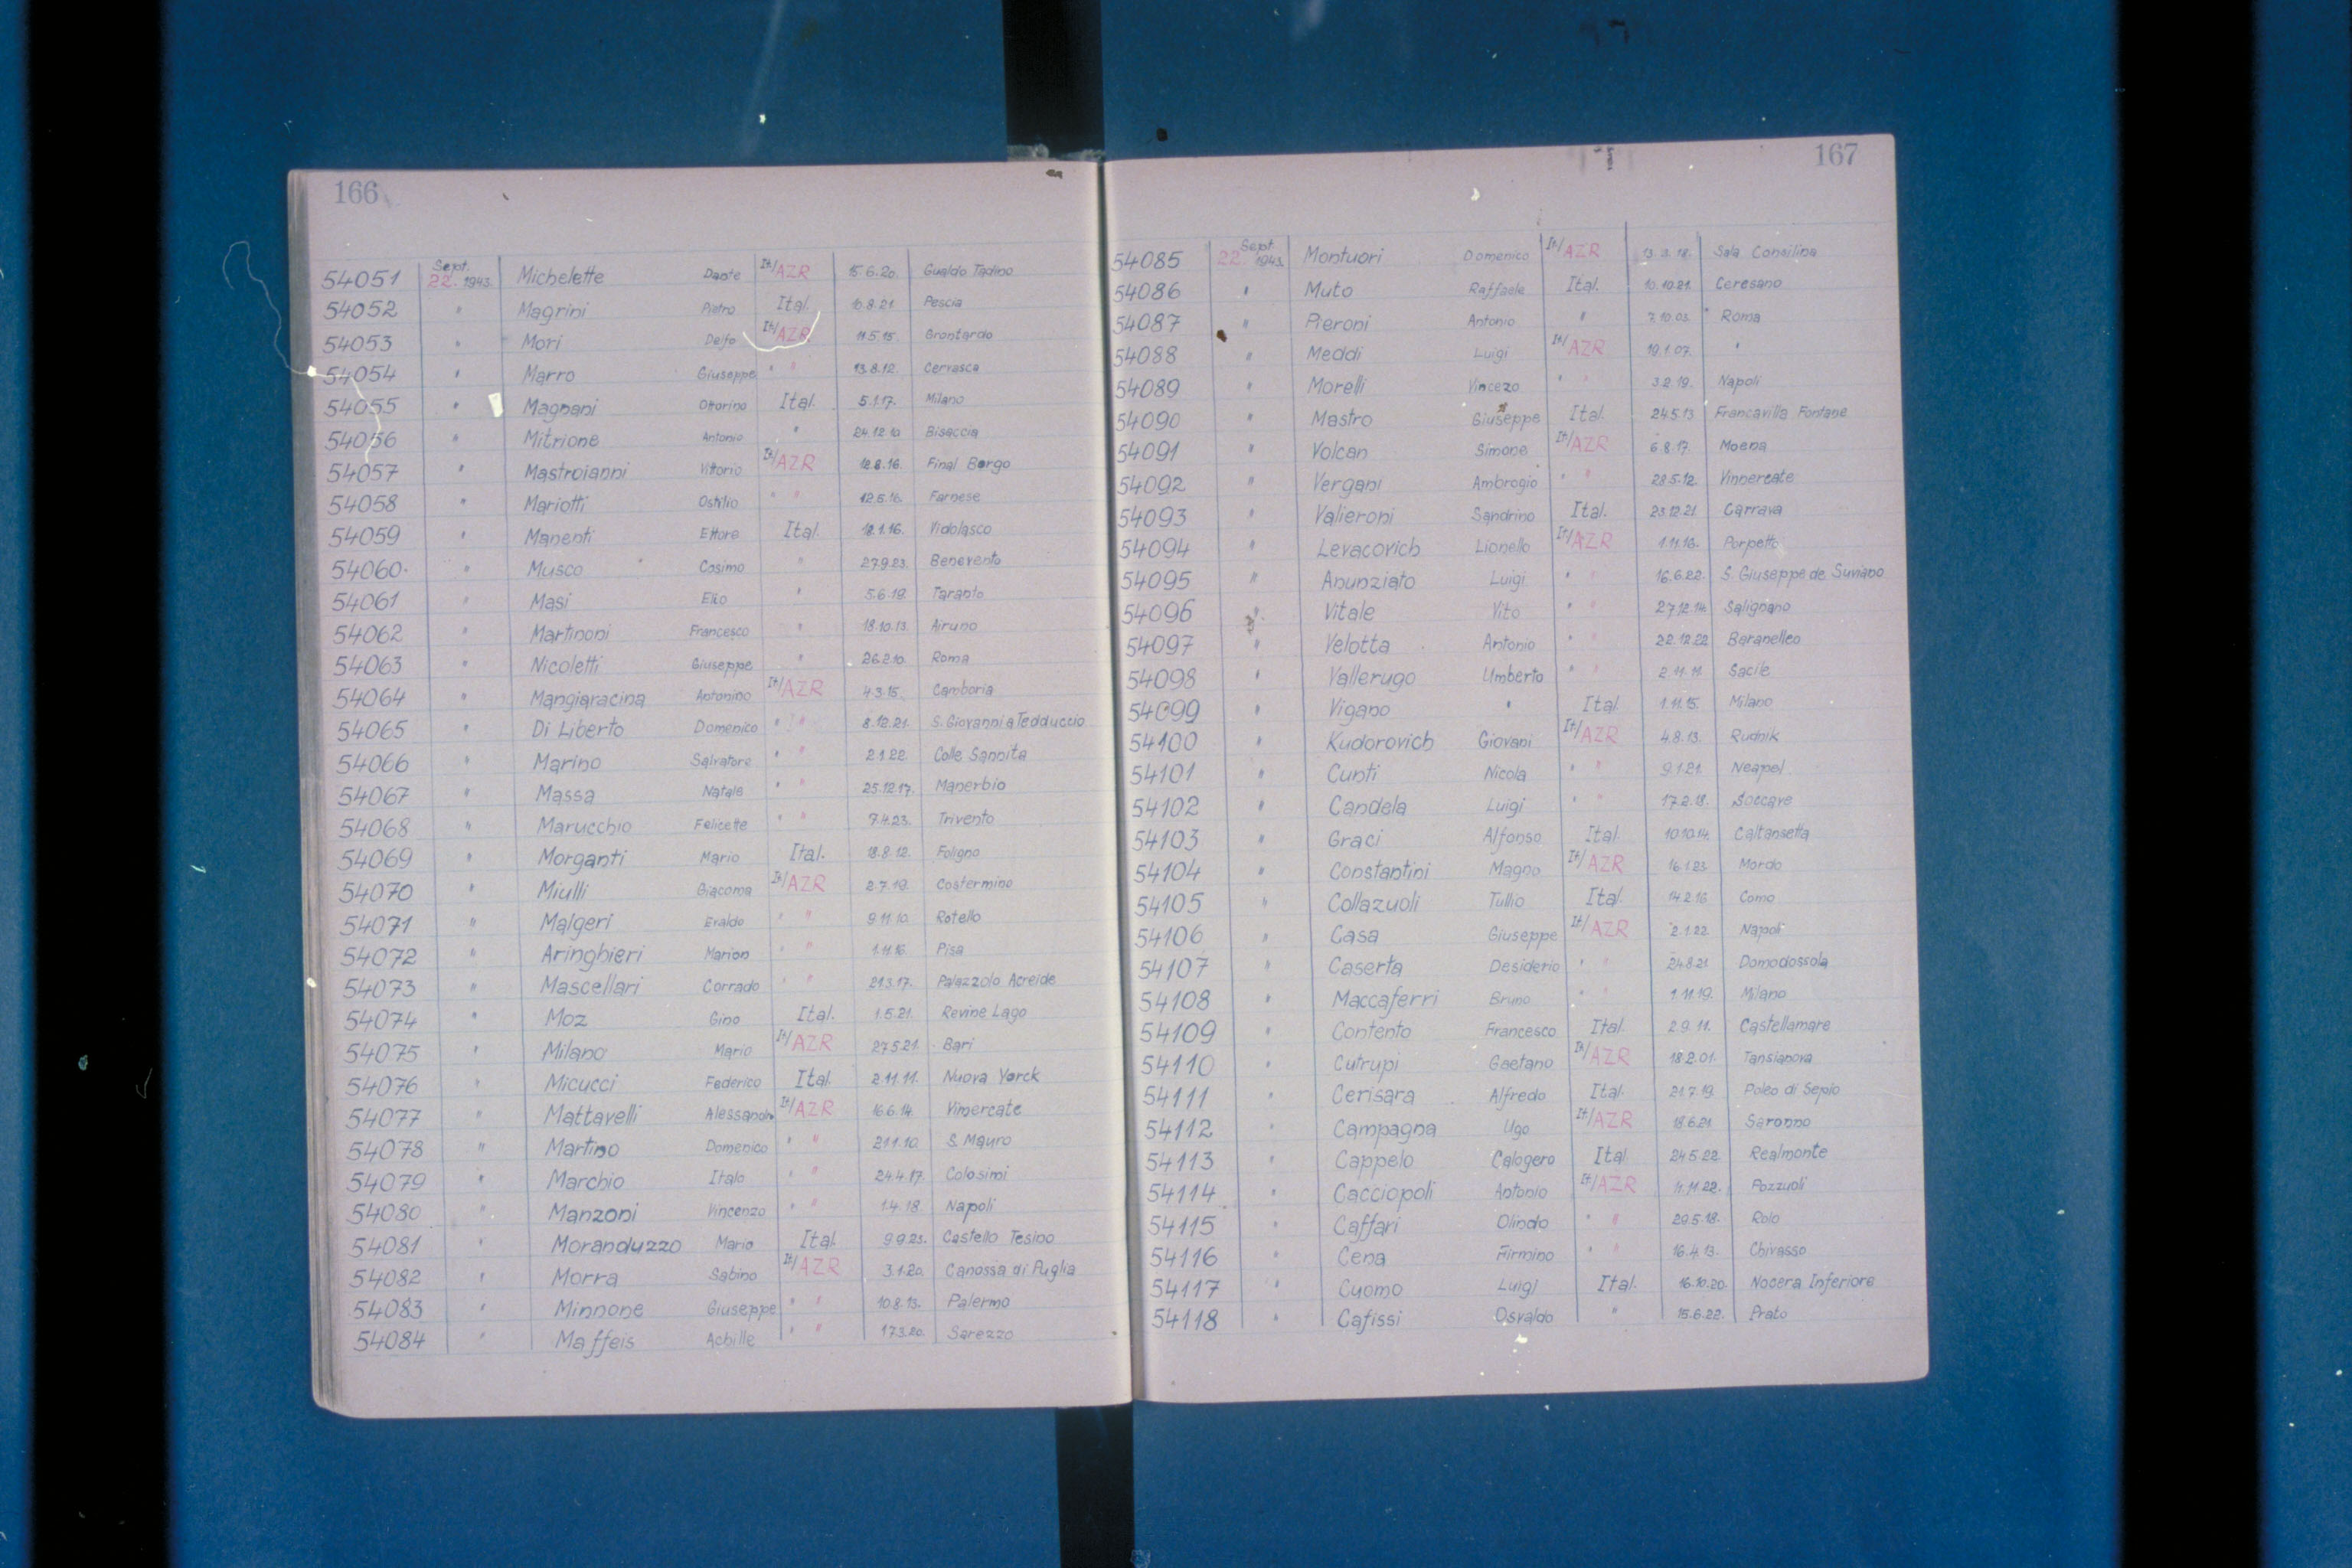 166
54051 Sept. 22. 1943. Michelette Dante It/AZR 15.6.20. Gualdo Tadino
54052 " Magrini Pietro Ital. 10.8.21. Pescia
54053 " Mori Delfo It/AZR 11.5.15. Grontardo
54054 " Marro Giuseppe " " 13.8.12. Cervasca
54055 " Magnani Ottorino Ital. 5.1.17. Milano
54056 " Mitrione Antonio " 24.12.10 Bisaccia
54057 " Mastroianni Vittorio It/AZR 12.8.16. Final Borgo
54058 " Mariotti Ostilio " " 12.5.16. Farnese
54059 " Manenti Ettore Ital. 18.1.16. Vidolasco
54060. " Musco Cosimo " 27.9.23. Benevento
54061 " Masi Elio " 5.6.19. Taranto
54062 " Martinoni Francesco " 18.10.13. Airuno
54063 " Nicoletti Giuseppe " 26.2.10. Roma
54064 " Mangiaracina Antonino It/AZR 4.3.15. Camboria
54065 " Di Liberto Domenico " " 8.12.21. S. Giovanni a Tedduccio
54066 " Marino Salvatore " " 2.1.22. Colle Sannita
54067 " Massa Natale " " 25.12.17. Manerbio
54068 " Marucchio Felicette " " 7.4.23. Trivento
54069 " Morganti Mario Ital. 18.8.12. Foligno
54070 " Miulli Giacoma It/AZR 2.7.19. Costermino
54071 " Malgeri Eraldo " " 9.11.10. Rotello
54072 " Aringhieri Marion " " 1.11.16. Pisa
54073 " Mascellari Corrado " " 21.3.17. Palazzolo Acreide
54074 " Moz Gino Ital. 1.5.21. Revine Lago
54075 " Milano Mario It/AZR 27.5.21. Bari
54076 " Micucci Federico Ital. 2.11.11. Nuova Yorck
54077 " Mattavelli Alessandro It/AZR 16.6.14. Vimercate
54078 " Martino Domenico " " 21.1.10. S. Mauro
54079 " Marchio Italo " " 24.4.17. Colosimi
54080 " Manzoni Vincenzo " " 1.4.18. Napoli
54081 " Moranduzzo Mario Ital. 9.9.23. Castello Tesino
54082 " Morra Sabino It/AZR 3.1.20. Canossa di Puglia
54083 " Minnone Giuseppe " " 10.8.13. Palermo
54084 " Maffeis Achille " " 17.3.20. Sarezzo
167
54085 Sept. 22 1943. Montuori Domenico It/AZR 13.3.18. Sala Consilina
54086 " Muto Raffaele Ital. 10.10.21. Ceresano
54087 " Pieroni Antonio " 7.10.03. Roma
54088 " Meddi Luigi It/AZR 19.1.07. "
54089 " Morelli Vincezo " " 3.2.19. Napoli
54090 " Mastro Giuseppe Ital. 24.5.13 Francavilla Fontane
54091 " Volcan Simone It/AZR 6.8.17. Moena
54092 " Vergani Ambrogio " " 28.5.12. Vinnercate
54093 " Valieroni Sandrino Ital. 23.12.21. Carrava
54094 " Levacovich Lionello It/AZR 1.11.16. Porpetto
54095 " Anunziato Luigi " " 16.6.22. S. Giuseppe de Suviano
54096 " Vitale Vito " " 27.12.14. Salignano
54097 " Velotta Antonio " " 22.12.22 Baranelleo
54098 " Vallerugo Umberto " " 2.11.11 Sacile
54099 " Vigano " Ital. 1.11.15. Milano
54100 " Kudorovich Giovani It/AZR 4.8.13. Rudnik
54101 " Cunti Nicola " " 9.1.21. Neapel
54102 " Candela Luigi " " 17.2.18. Soccave
54103 " Graci Alfonso Ital. 10.10.14. Caltansetta
54104 " Constantini Magno It/AZR 16.1.23 Mordo
54105 " Collazuoli Tullio Ital. 14.2.16 Como
54106 " Casa Giuseppe It/AZR 2.1.22. Napoli
54107 " Caserta Desiderio " " 24.8.21 Domodossola
54108 " Maccaferri Bruno " " 1.11.19. Milano
54109 " Contento Francesco Ital. 2.9.11. Castellamare
54110 " Cutrupi Gaetano It/AZR 18.2.01. Tansianova
54111 " Cerisara Alfredo Ital. 21.7.19. Poleo di Sepio
54112 " Campagna Ugo It/AZR 18.6.21 Saronno
54113 " Cappelo Calogero Ital. 24.5.22. Realmonte
54114 " Cacciopoli Antonio It/AZR 11.11.22. Pozzuoli
54115 " Caffari Olindo " " 29.5.18. Rolo
54116 " Cena Firmino " " 16.4.13. Chivasso
54117 " Cuomo Luigi Ital. 16.10.20. Nocera Inferiore
54118 " Cafissi Osvaldo " 15.6.22. Prato